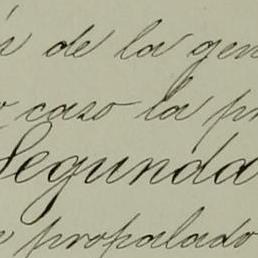 de la gen
caso la pr
Segunda
propalado